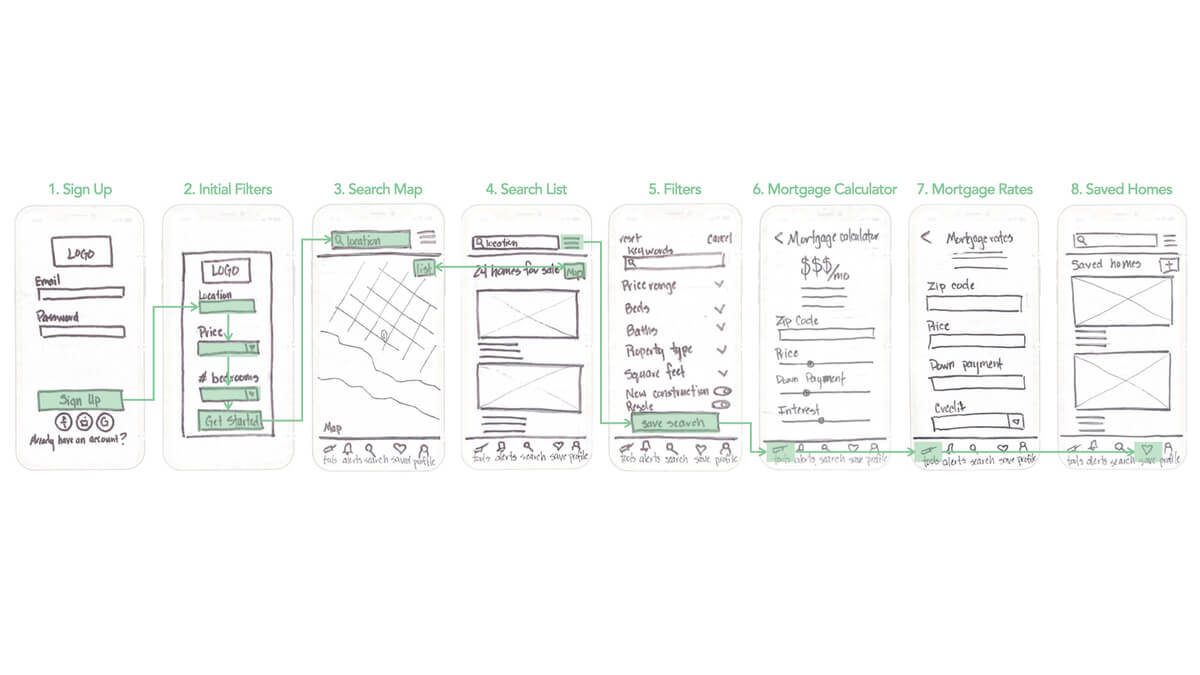 1. Sign Up
LOGO
Email
Password
Sign Up
f G
Already have an account?
2. Initial Filters
LOGO
Location
Price
# bedrooms
Get Started
3. Search Map
location
list
Map
tools alerts search saved profile
4. Search List
location
24 homes for sale
Map
tools alerts search save profile
5. Filters
reset cancel
keywords
Price range
Beds
Baths
Property type
Square feet
New construction
Resale
save search
tools alerts search save profile
6. Mortgage Calculator
< Mortgage calculator
$$$/mo
Zip Code
Price
Down Payment
Interest
tools alerts search save profile
7. Mortgage Rates
< Mortgage rates
Zip code
Price
Down payment
Credit
tools alerts search save profile
8. Saved Homes
Saved homes +
tools alerts search save profile